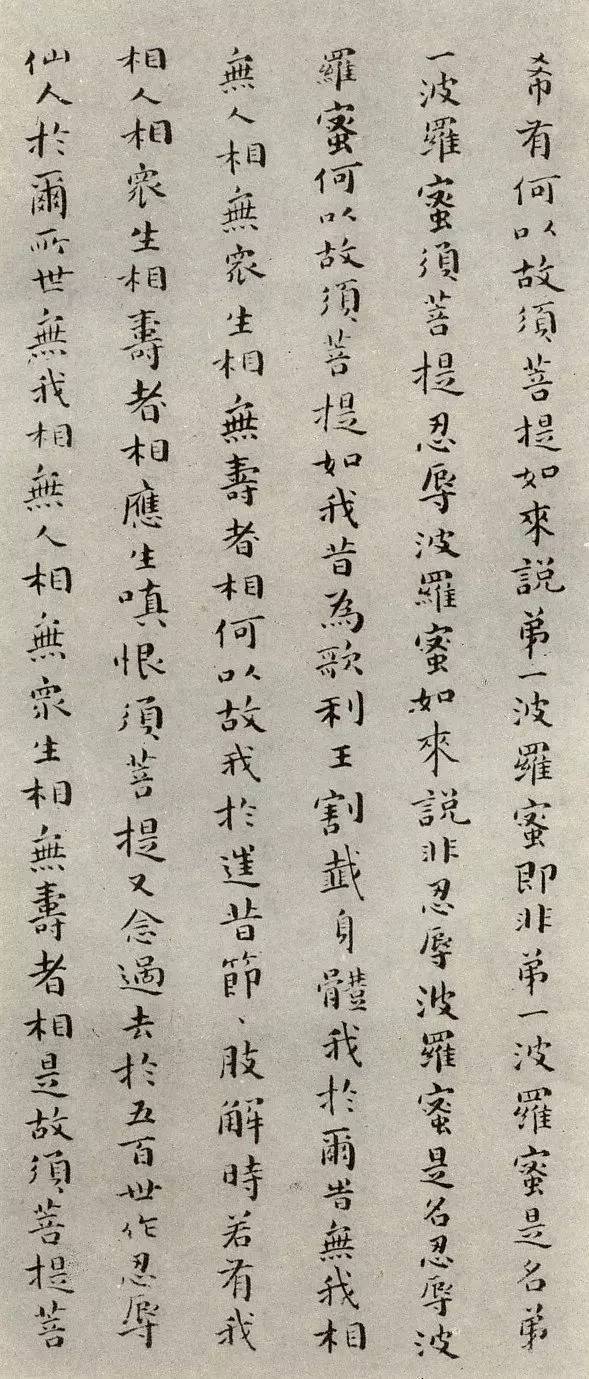 希有何以故須菩提如來說第一波羅蜜即非第一波羅蜜是名第
一波羅蜜須菩提忍辱波羅蜜如來說非忍辱波羅蜜是名忍辱波
羅蜜何以故須菩提如我昔為歌利王割截身體我於爾時無我相
無人相無眾生相無壽者相何以故我於往昔節、肢解時若有我
相人相眾生相壽者相應生嗔恨須菩提又念過去於五百世作忍辱
仙人於爾所世無我相無人相無眾生相無壽者相是故須菩提菩